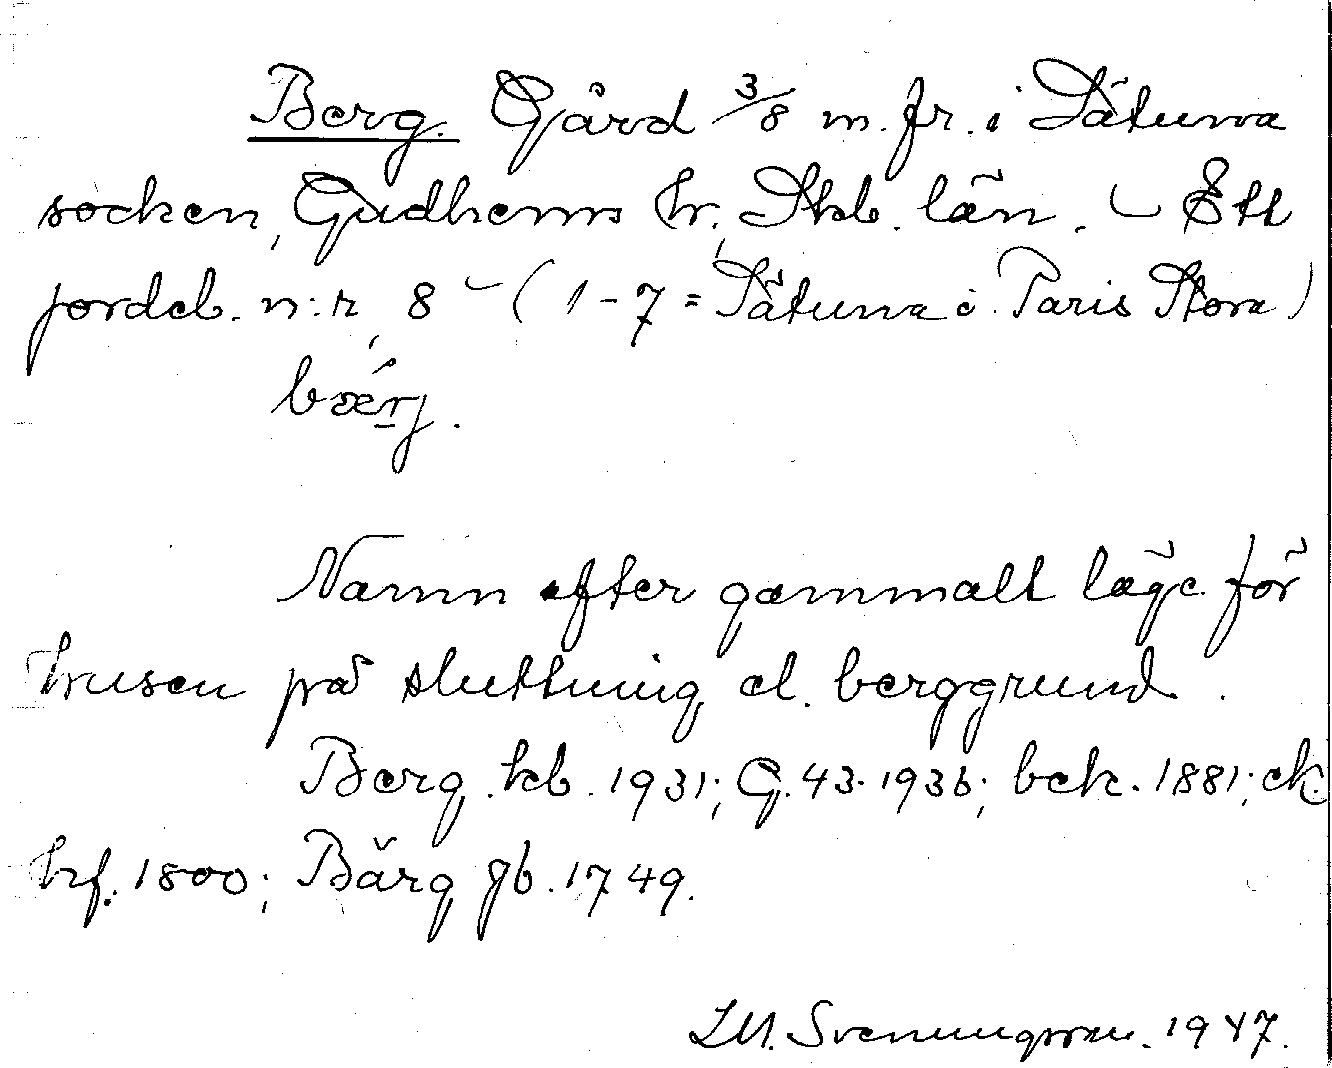 Berg. Gård 3/8 m. fr. i Sätuna
socken, Gudhems hr, Skb. län. – Ett
jordeb. n:r, 8 – (1-7 = Sätuna o. Paris Stora)
bærj.
Namn efter gammalt läge för
husen på sluttning el. berggrund.
Berg kb. 1931; G. 43. 1936; bek. 1881; ek.
hf. 1800; Bärg jb. 1749.
Svenungsson. 1947.